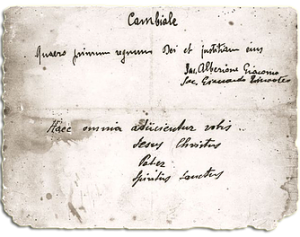 Cambiale
Quaero primum regnum Dei et justitiam eius
Sac. Alberione Giacomo
Sac. Giaccardo Timoteo
Haec omnia adiicientur vobis..
Jesus Christus
Pater
Spiritus Sanctus